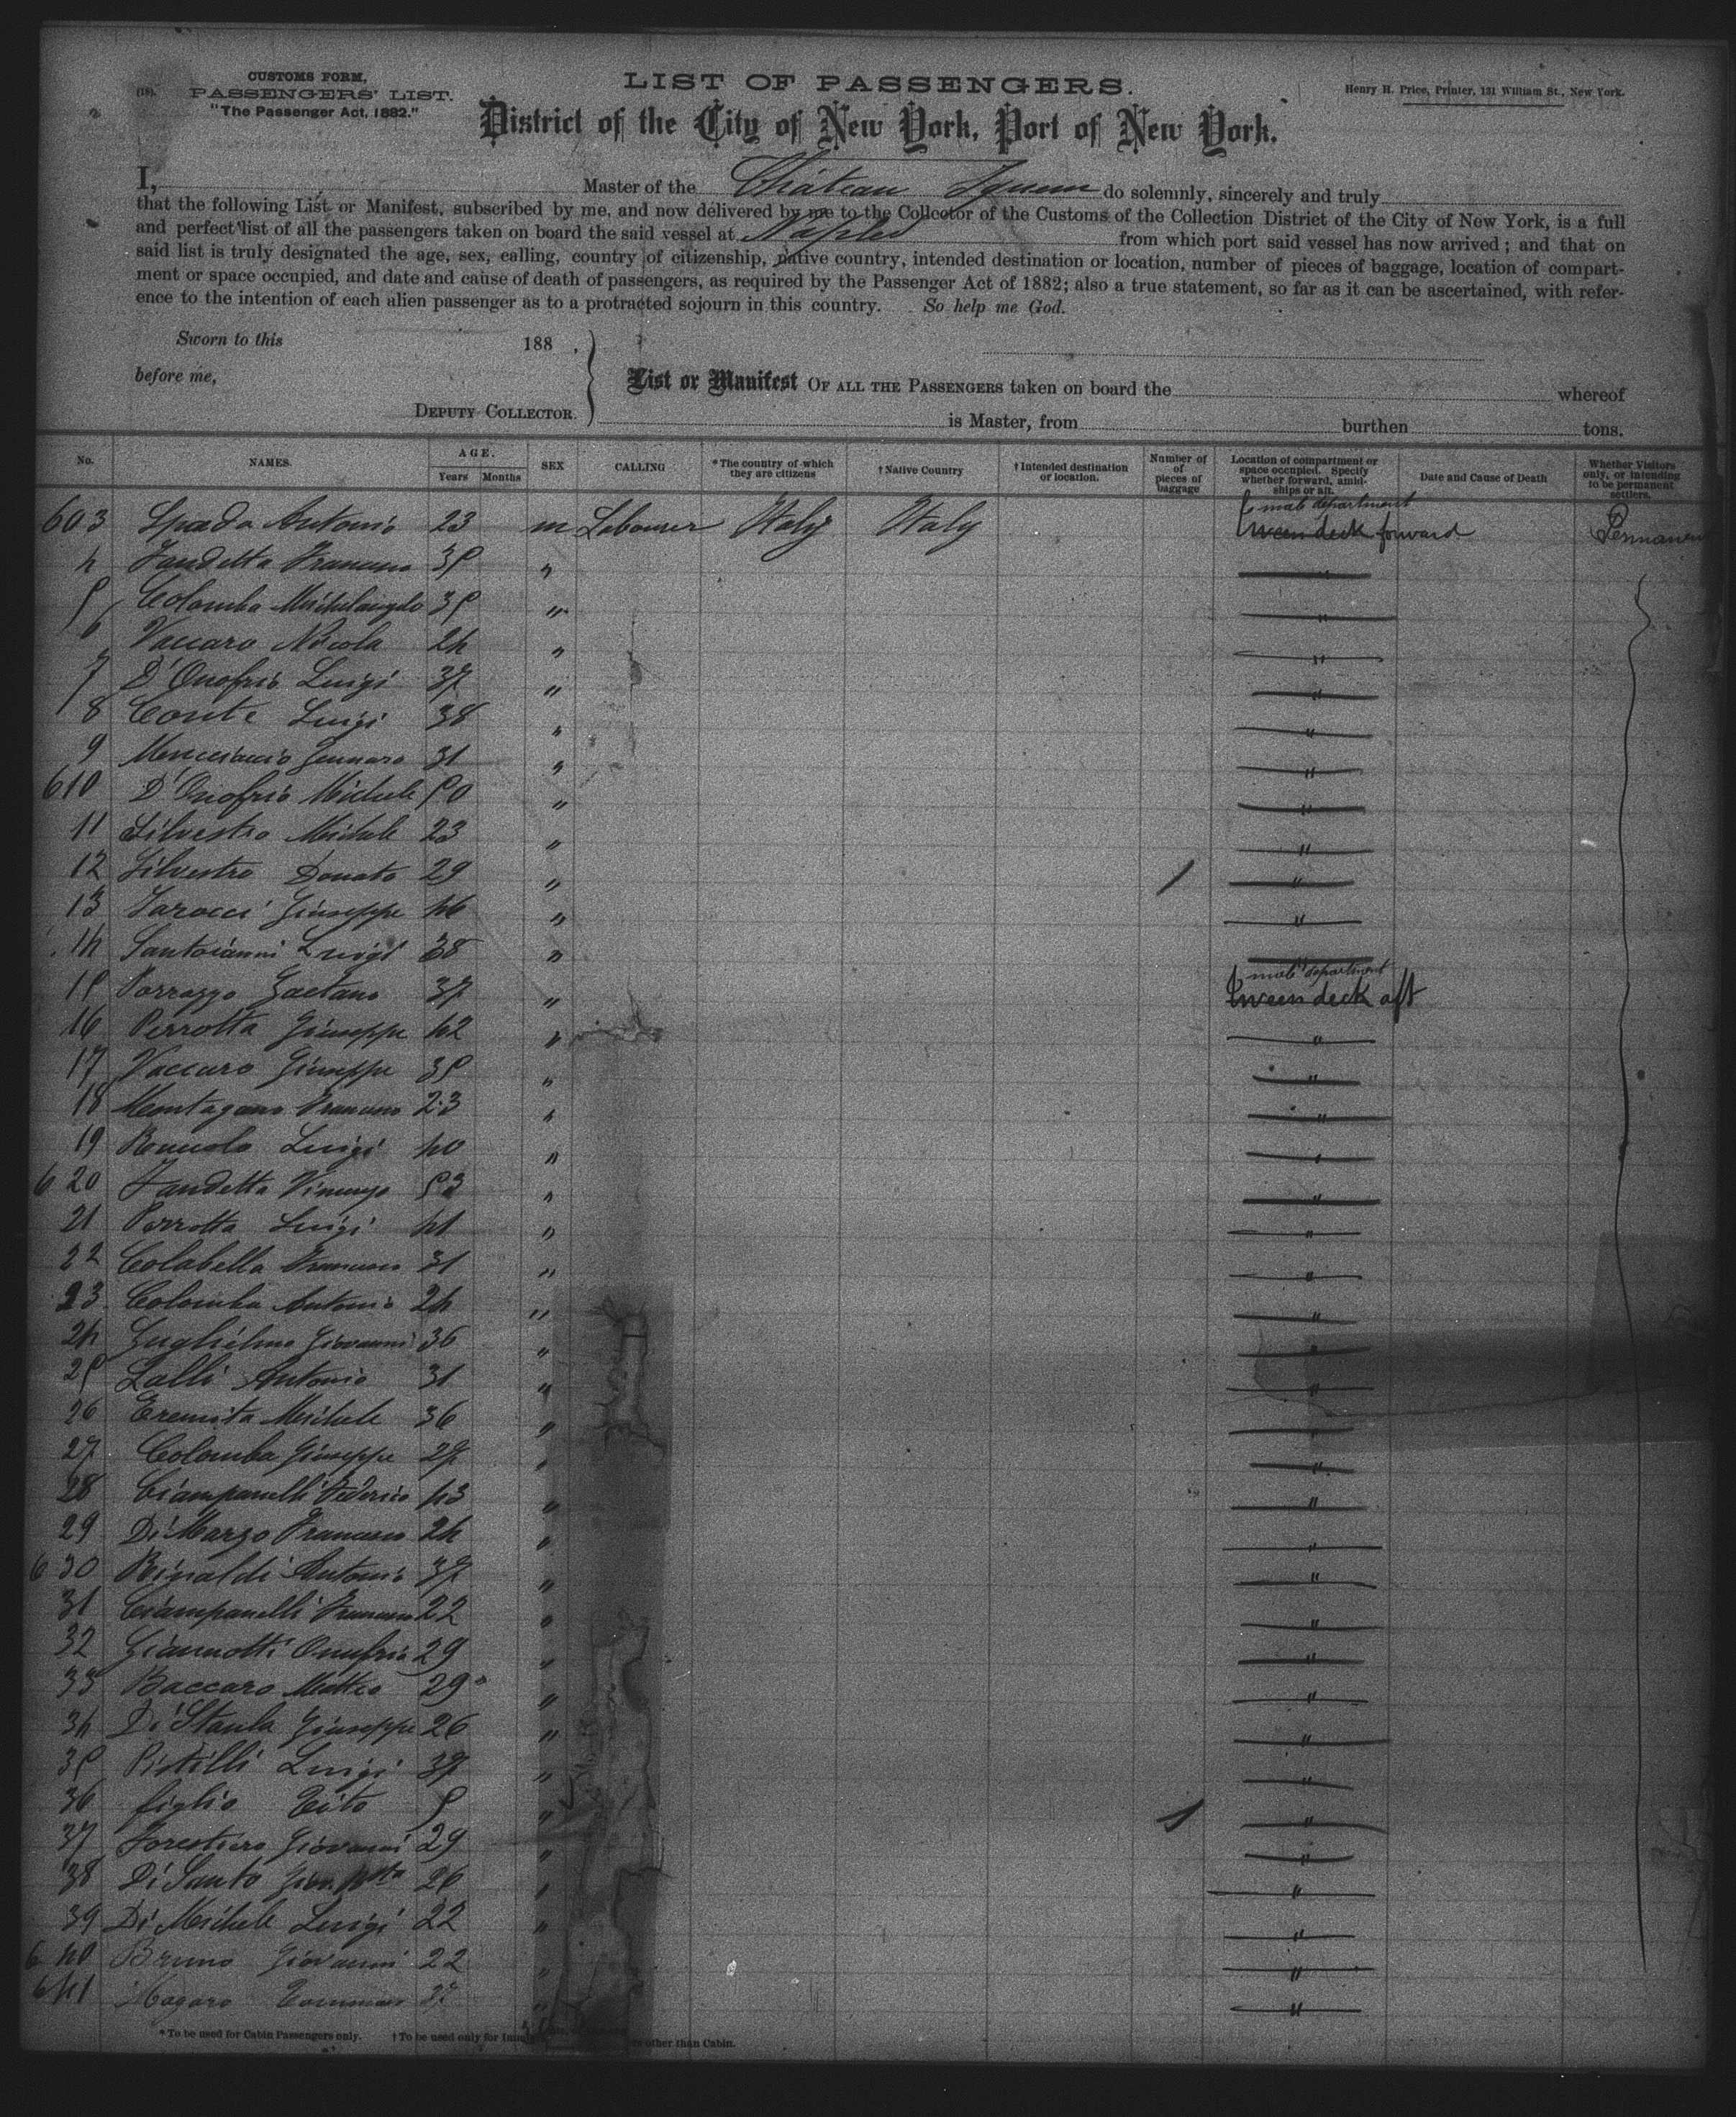 (18).
CUSTOMS FORM,
PASSENGERS' LIST.
"The Passenger Act, 1882."
LIST OF PASSENGERS.
Henry H. Price, Printer, 131 William St., New York.
District of the City of New York, Port of New York.
I, Master of the Château Yquem do solemnly, sincerely and truly
that the following List or Manifest, subscribed by me, and now delivered by me to the Collector of the Customs of the Collection District of the City of New York, is a full
and perfect list of all the passengers taken on board the said vessel at Naples from which port said vessel has now arrived; and that on
said list is truly designated the age, sex, calling, country of citizenship, native country, intended destination or location, number of pieces of baggage, location of compart-
ment or space occupied, and date and cause of death of passengers, as required by the Passenger Act of 1882; also a true statement, so far as it can be ascertained, with refer-
ence to the intention of each alien passenger as to a protracted sojourn in this country. So help me God.
Sworn to this 188 .
before me,
DEPUTY COLLECTOR.
List or Manifest OF ALL THE PASSENGERS taken on board the whereof
is Master, from burthen tons.
No. NAMES. AGE. Years Months SEX CALLING *The country of which they are citizens †Native Country †Intended destination or location. Number of pieces of baggage Location of compartment or space occupied. Specify whether forward, amid-ships or aft. Date and Cause of Death Whether Visitors only, or intending to be permanent settlers.
603 Spada Antonio 23 m Labourer Italy Italy male department tween deck forward Permanent
4 Iandetta Francesco 35 " "
5 Colomba Michelangelo 35 " "
6 Vaccaro Nicola 24 " "
7 D'Onofrio Luigi 37 " "
8 Conte Luigi 38 " "
9 Gennaro 31 " "
610 D'Onofrio Michele 50 " "
11 Silvestro Michele 23 " "
12 Silvestro Donato 29 " / "
13 Iarocci Giuseppe 46 " "
14 Santoianni Luigi 38 "
15 Porrazzo Gaetano 37 " male department tween deck aft
16 Perrotta Giuseppe 42 " "
17 Vaccaro Giuseppe 35 " "
18 Montagano Francesco 23 " "
19 Luigi 40 " "
620 Iandetta Vincenzo 53 " "
21 Perrotta Luigi 41 " "
22 Colabella Francesco 31 " "
23 Colomba Antonio 24 " "
24 Guglielmo Giovanni 36 " "
25 Lalli Antonio 31 " "
26 Eremita Michele 36 " "
27 Colomba Giuseppe 27 " "
28 Ciampanelli Federico 43 " "
29 Di Marzo Francesco 24 " "
630 Rinaldi Antonio 37 " "
31 Ciampanelli Francesco 22 " "
32 Giannotti Onofrio 29 " "
33 Baccaro Matteo 29 " "
34 Giuseppe 26 " "
35 Pistilli Luigi 37 " "
36 figlio Tito 5 " / "
37 Forestiero Giovanni 29 " "
38 Di Santo 26 " "
39 Di Michele Luigi 22 " "
640 Bruno Giovanni 22 " "
641 Magaro Tommaso " "
*To be used for Cabin Passengers only. †To be used only for other than Cabin.